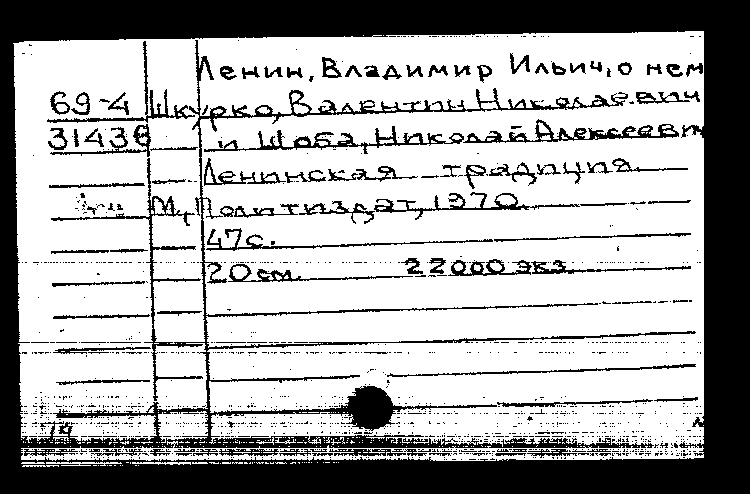 Ленин, Владимир Ильич, о нем
69-4 Шкурко, Валентин Николаевич
31436 и Шоба, Николай Алексеевич
Ленинская традиция.
М., Политиздат, 1970.
47с.
20 см. 22000 экз.